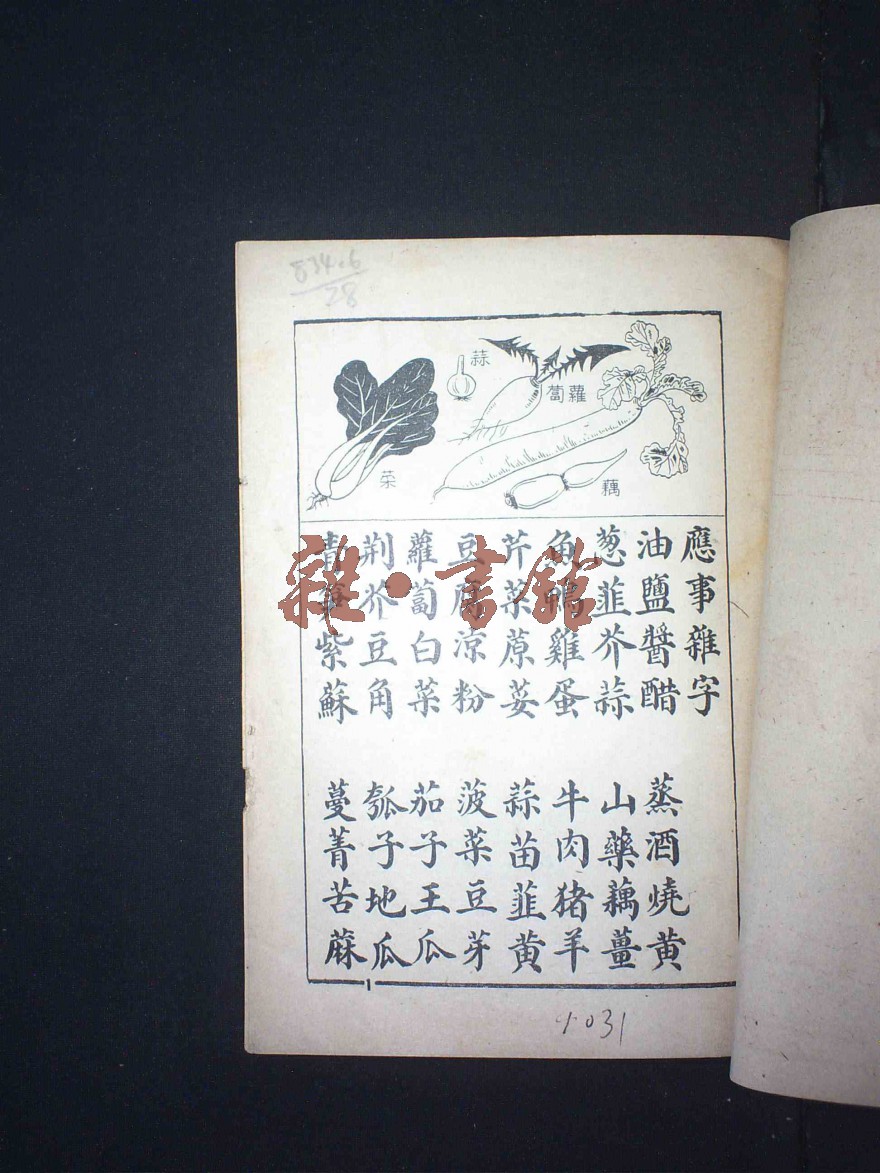 834.6
28
蒜
蘿蔔
菜
藕
應事雜字
油鹽醬醋 蒸酒燒黄
葱韮芥蒜 山藥藕薑
魚鴨雞蛋 牛肉猪羊
芹菜蒝荽 蒜苗韮黄
豆腐凉粉 菠菜豆芽
蘿蔔白菜 茄子王瓜
荆芥豆角 瓠子地瓜
青 紫蘇 蔓菁苦蔴
1
雜·書館
1031